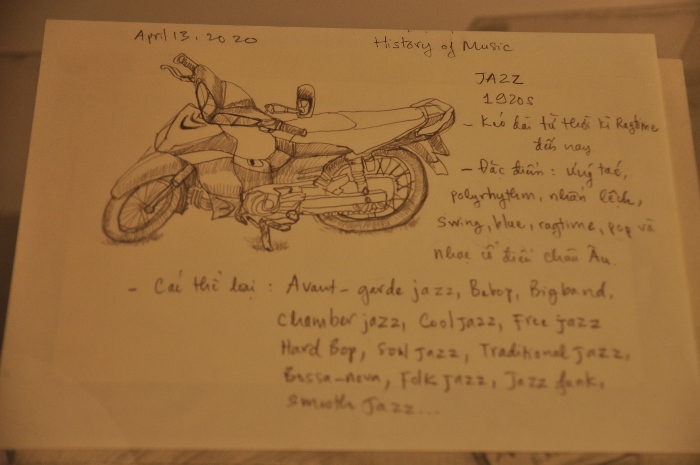 April 13, 2020
History of Music
JAZZ
1920s
- Kéo dài từ thời kì Ragtime
đến nay
- Đặc điểm: ứng tác,
polyrhythm, nhấn lệch,
swing, blue, ragtime, pop và
nhạc cổ điển châu Âu
- Các thể loại: Avant-garde jazz, Bebop, Bigband,
Chamber jazz, Cool jazz, Free jazz
Hard Bop, Soul jazz, Traditional jazz,
Bossa-nova, Folk jazz, Jazz funk,
Smooth Jazz...